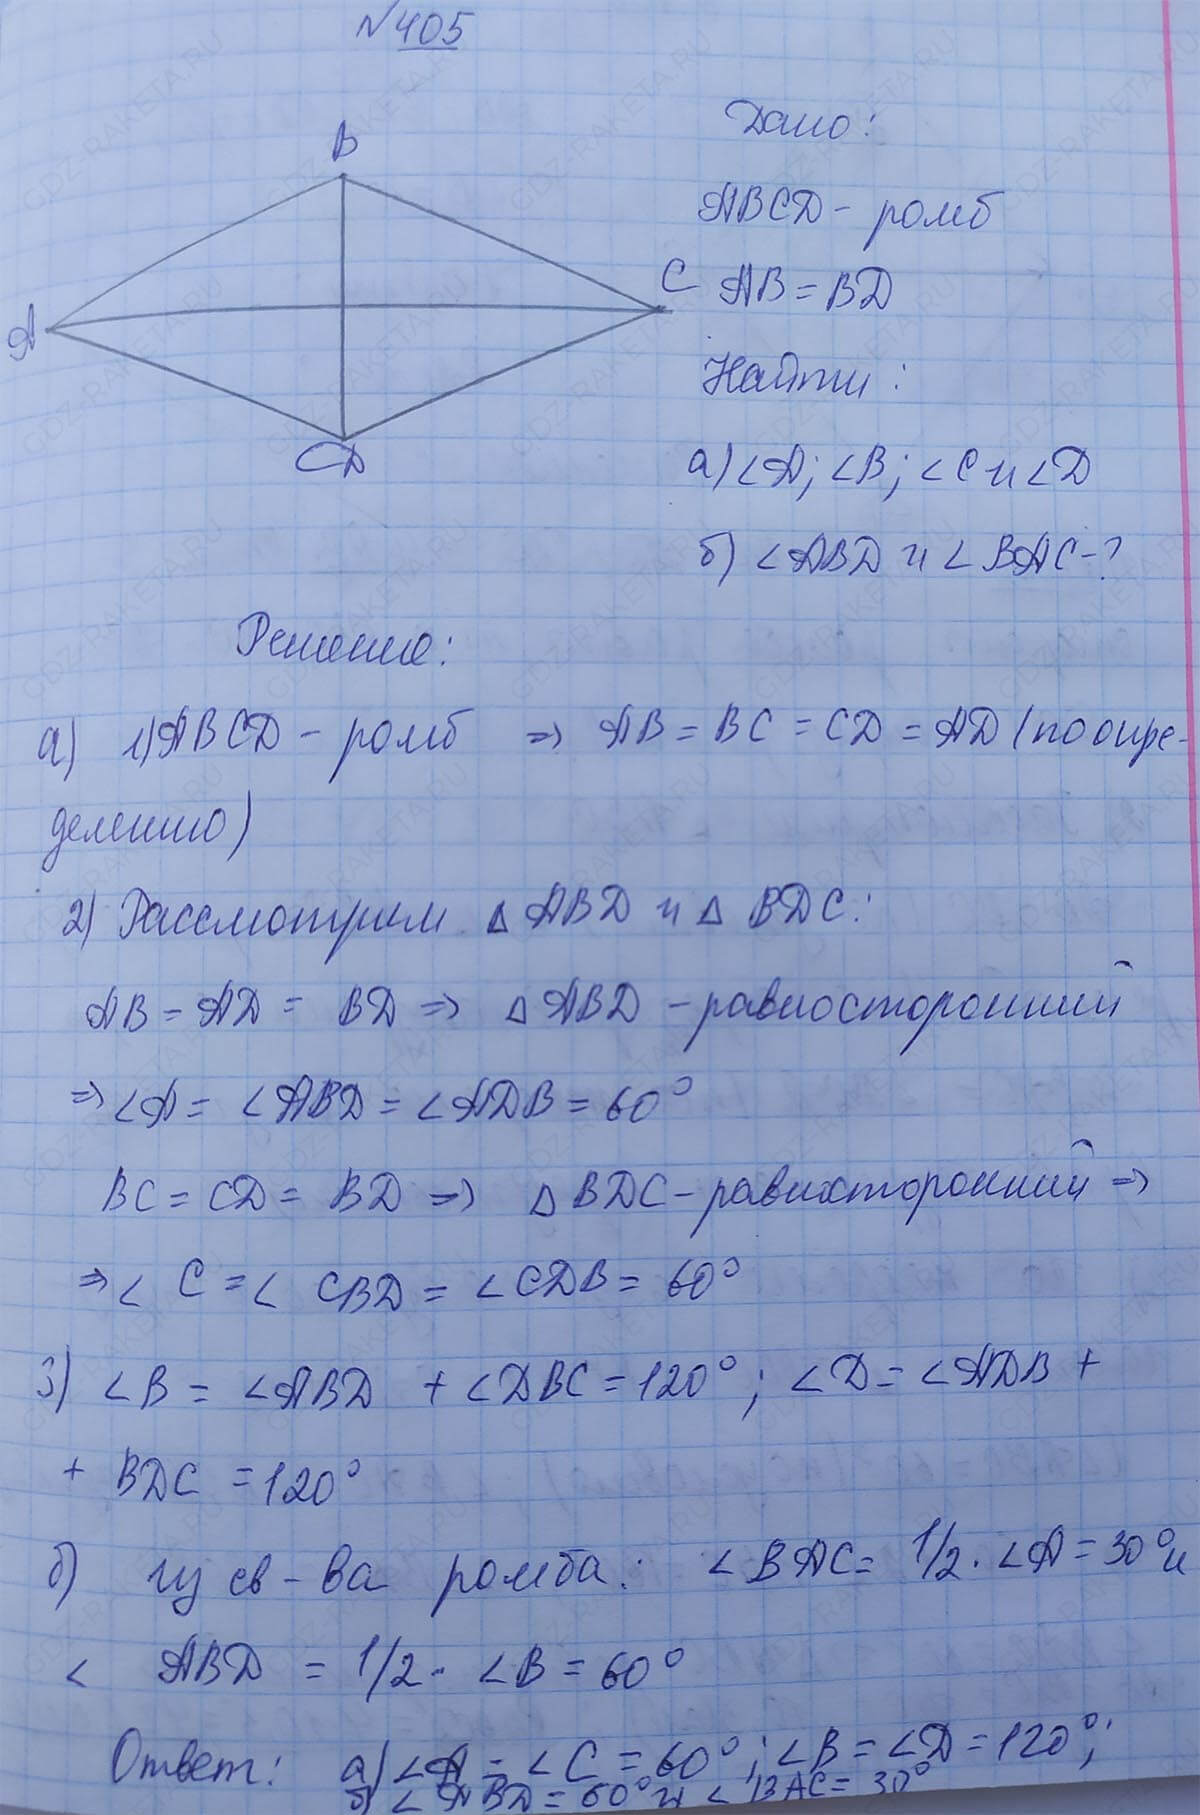 №405
B
Дано:
ABCD - ромб
C
AB = BD
A
Найти:
CD
а) ∠A; ∠B; ∠C и ∠D
б) ∠ABD и ∠BAC-?
Решение:
а) 1) ABCD - ромб => AB = BC = CD = AD (по опре-
делению)
2) Рассмотрим △ ABD и △ BDC:
AB = AD = BD => △ ABD - равносторонний
=> ∠A = ∠ABD = ∠ADB = 60°
BC = CD = BD => △ BDC - равносторонний =>
=> ∠ C = ∠ CBD = ∠CDB = 60°
3) ∠B = ∠ABD + ∠DBC = 120°; ∠D = ∠ADB +
+ BDC = 120°
б) из св-ва ромба: ∠BAC = 1/2 · ∠A = 30° и
∠ ABD = 1/2 · ∠B = 60°
Ответ: а) ∠A = ∠C = 60°; ∠B = ∠D = 120°;
б) ∠ ABD = 60° и ∠ BAC = 30°
GDZ-RAKETA.RU